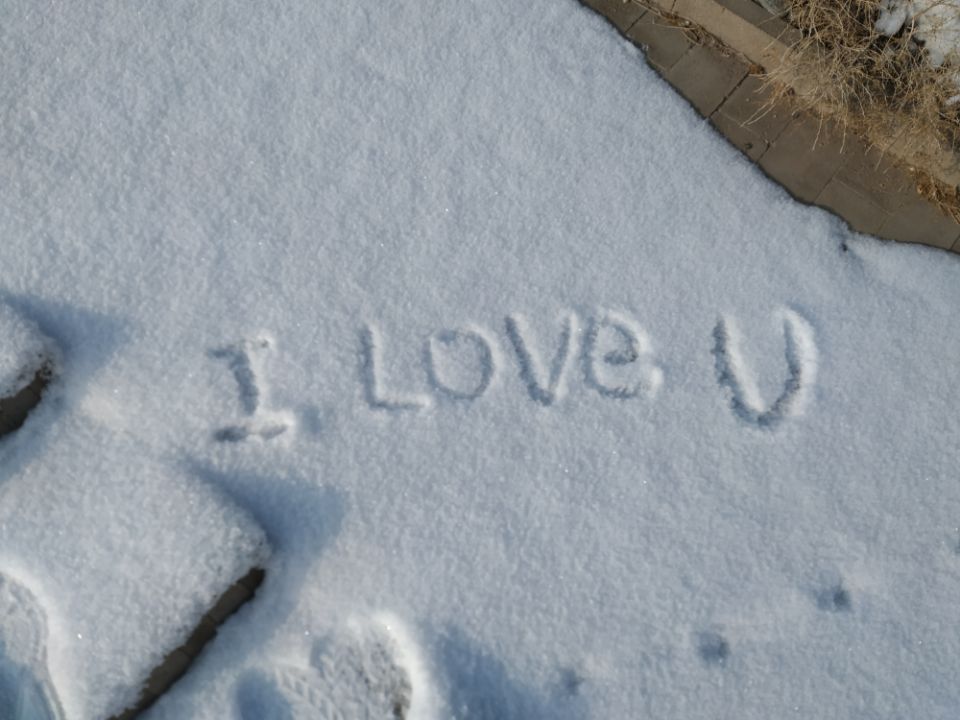 I LOVe U